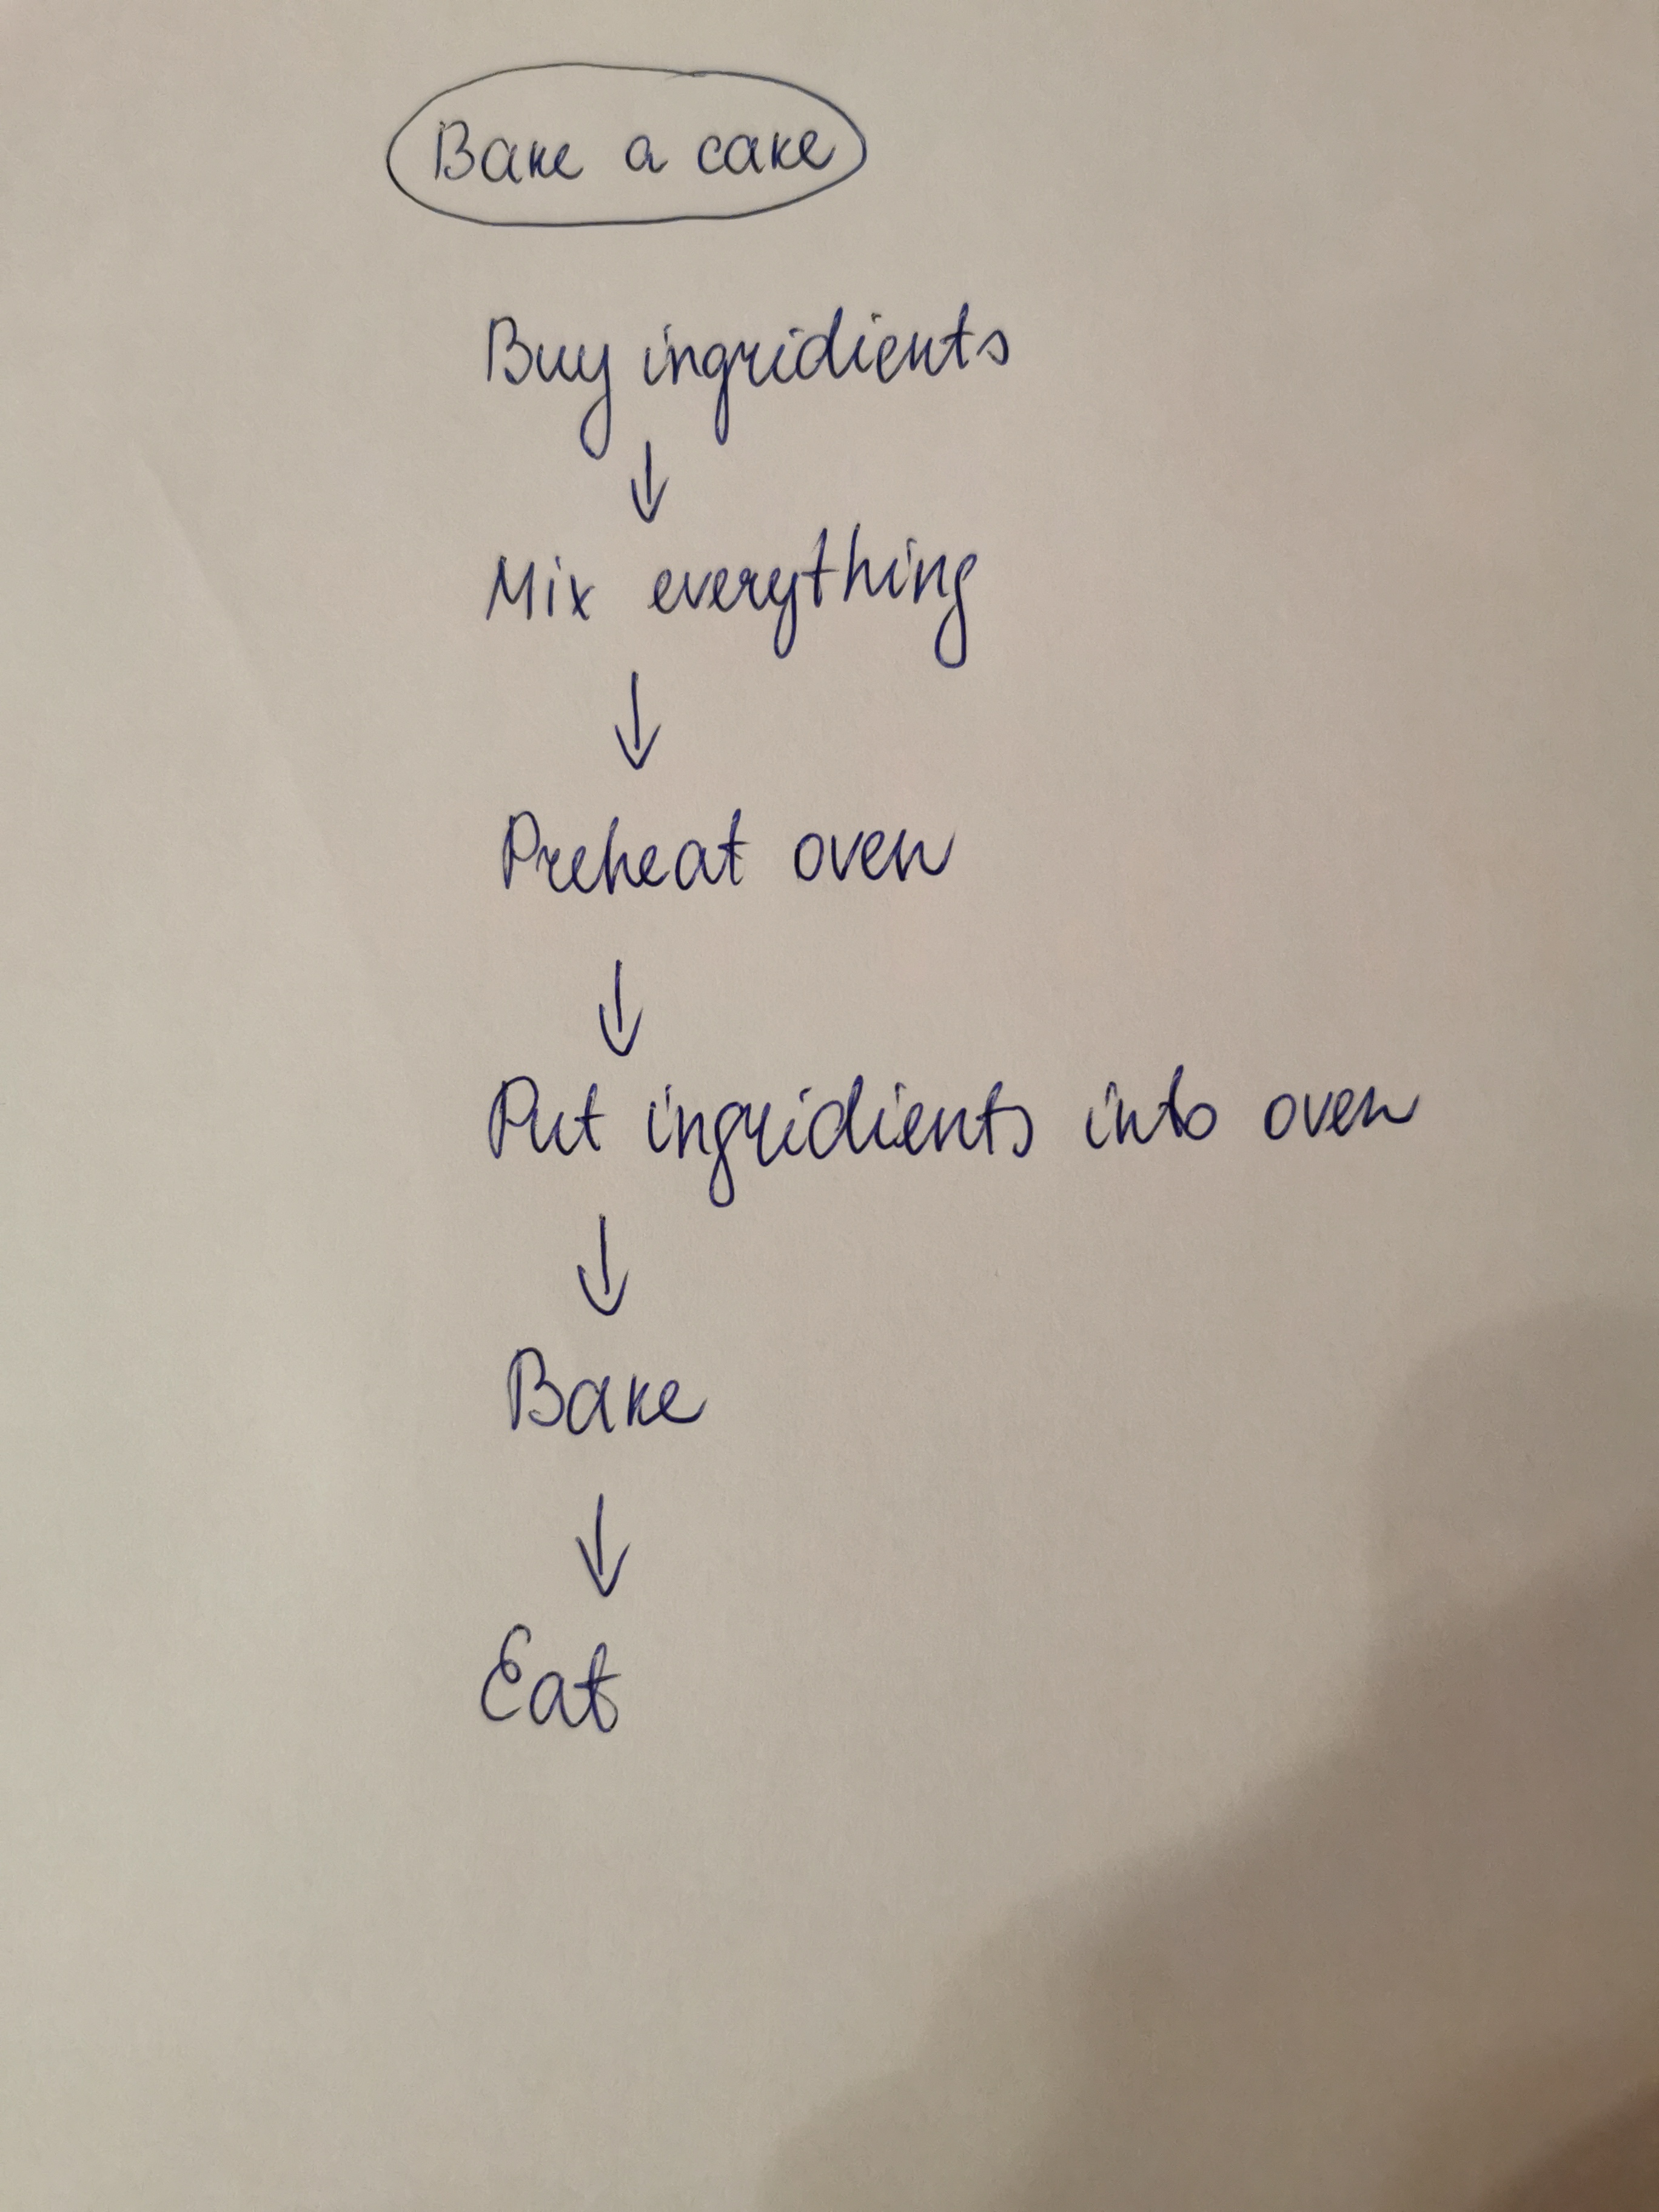 Bake a cake
Buy ingridients
↓
Mix everything
↓
Preheat oven
↓
Put ingridients into oven
↓
Bake
↓
Eat